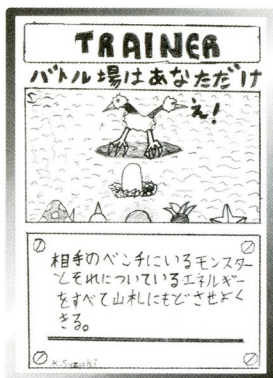 TRAINER
バトル場はあなただけ
え!
相手のベンチにいるモンスター
とそれについているエネルギー
をすべて山札にもどさせよく
きる。
K.Suzuki